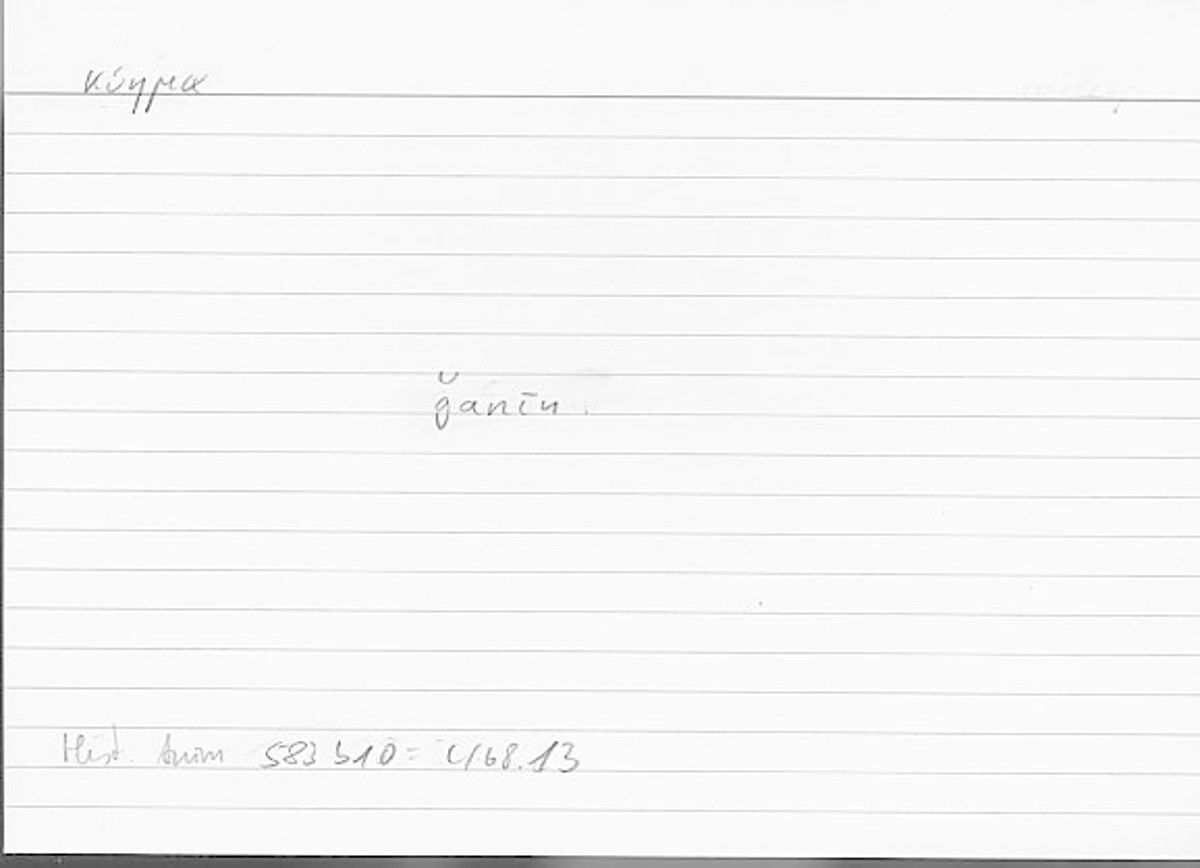 κύημα
ǧanīn.
Hist. Anim 583 b10 = 468.13